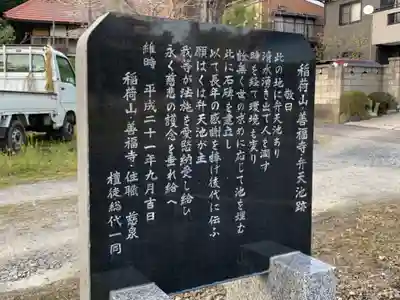 稲荷山・善福寺・弁天池跡
敬白
此の地に弁天池あり
清水湧き出て人を潤す
時を経て環境も変り
余儀無く世の求めに応じて池を埋む
此に石碑を建立し
以て長年の感謝を捧げ後代に伝ふ
願はくは弁天池が主
我等が法施を愛愍納受し給ひ
永く慈悲の護念を垂れ給へ
維時 平成二十一年九月吉日
稲荷山・善福寺 住職 慈泉
檀徒総代一同